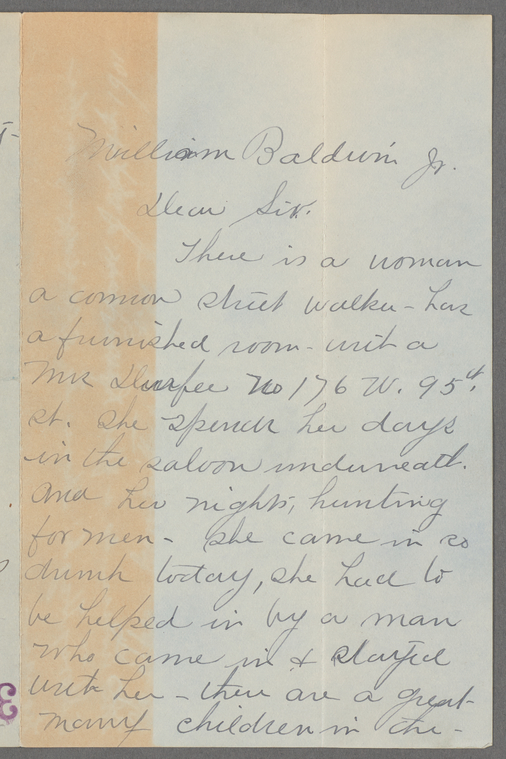 William Baldwin Jr.
Dear Sir.
There is a woman
a common street walker - has
a furnished room - with a
Mrs Durfee No 176 W. 95th.
st. she spends her days
in the saloon underneath.
and her nights, hunting
for men - she came in so
drunk today, she had to
be helped in by a man
who came in & stayed
with her - there are a great
many children in the -